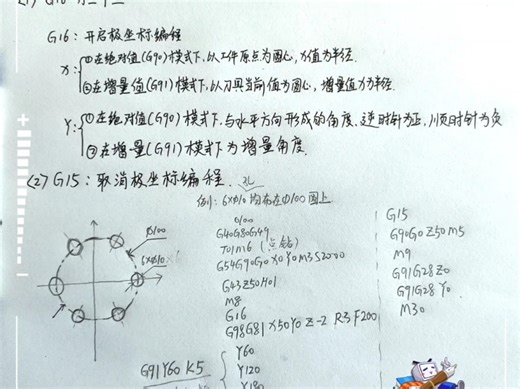 G16：开启极坐标编程
X：①在绝对值(G90)模式下，以工件原点为圆心，X值为半径.
②在增量值(G91)模式下，以刀具当前值为圆心，增量值为半径.
Y：①在绝对值(G90)模式下，与水平方向形成的角度、逆时针为正，顺时针为负
②在增量(G91)模式下为增量角度.
(2) G15：取消极坐标编程.
孔
例：6×Φ10均布在Φ100圆上
Φ100
6×Φ10
O100
G40G80G49
T01M6(点钻)
G54G90G0X0Y0M3S2000
G43Z50H01
M8
G16
G98G81X50Y0Z-2R3F200
G91Y60K5
Y60
Y120
Y180
G15
G90G0Z50M5
M9
G91G28Z0
G91G28Y0
M30